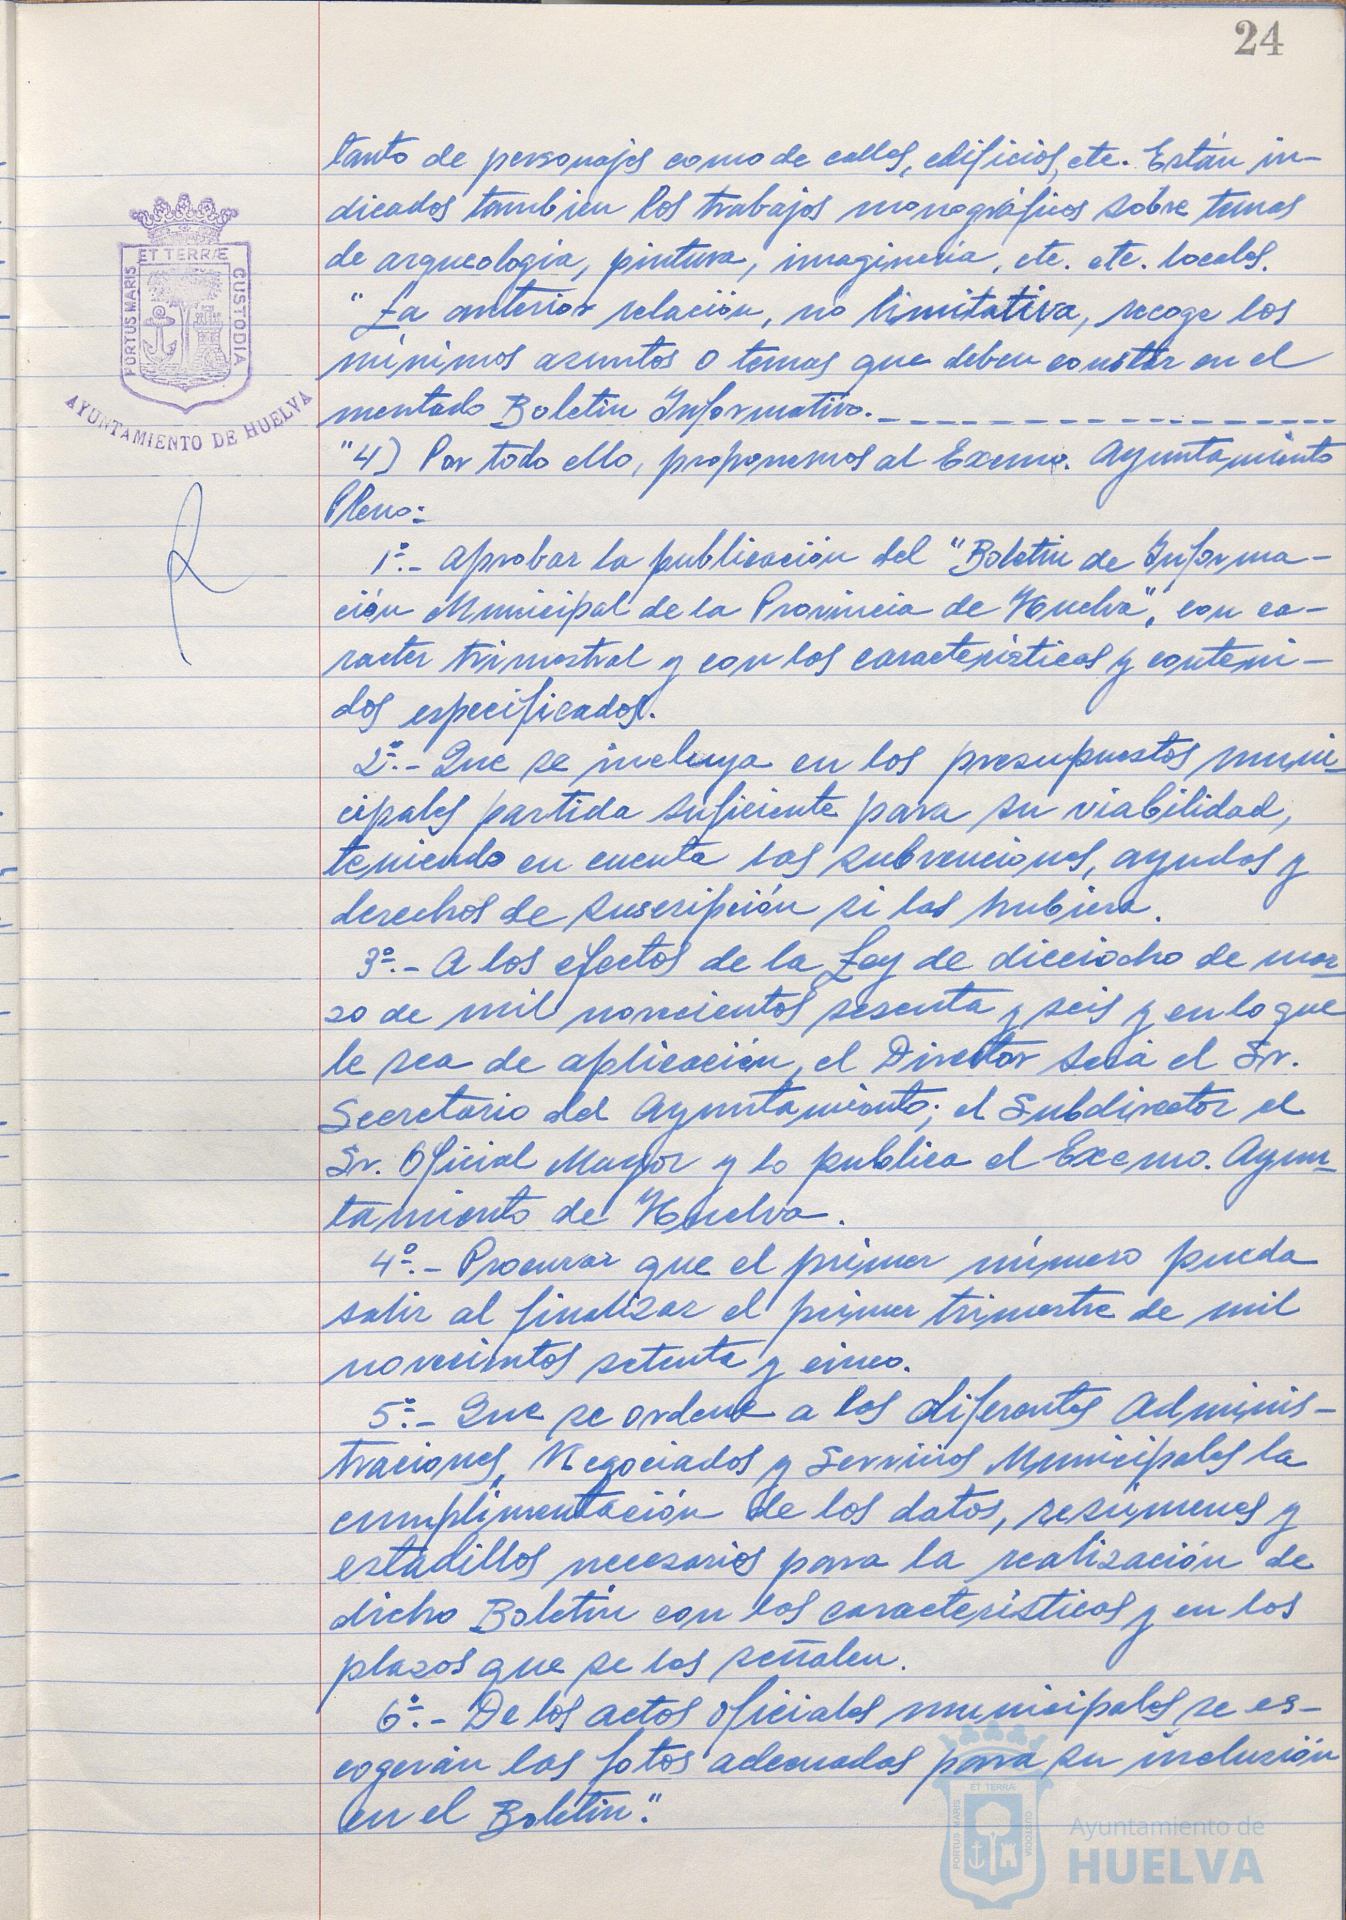 24
tanto de personajes como de calles, edificios, etc. Están in-
dicados tambien los trabajos monográficos sobre temas
de arqueologia, pintura, imagineria, etc. etc. locales.
"La anterior relación, no limitativa, recoge los
mínimos asuntos o temas que deben constar en el
mentado Boletin Informativo.
"4) Por todo ello, proponemos al Excmo. Ayuntamiento
Pleno:
1º.- Aprobar la publicación del "Boletin de Informa-
ción Municipal de la Provincia de Huelva", con ca-
racter trimestral y con las características y conteni-
dos especificados.
2º.- Que se incluya en los presupuestos muni-
cipales partida suficiente para su viabilidad,
teniendo en cuenta las subvenciones, ayudas y
derechos de suscripción si las hubiera.
3º.- A los efectos de la Ley de dieciocho de mar-
zo de mil novecientos sesenta y seis y en lo que
le sea de aplicación, el Director será el Sr.
Secretario del Ayuntamiento; el Subdirector el
Sr. Oficial Mayor y lo publica el Excmo. Ayun-
tamiento de Huelva.
4º.- Procurar que el primer número pueda
salir al finalizar el primer trimestre de mil
novecientos setenta y cinco.
5º.- Que se ordene a las diferentes Adminis-
traciones, Negociados y Servicios Municipales la
cumplimentación de los datos, resúmenes y
estadillos necesarios para la realización de
dicho Boletín con las características y en los
plazos que se les señalen.
6º.- De los actos oficiales municipales se es-
cogerán las fotos adecuadas para su inclusión
en el Boletin."
ET TERRÆ
PORTUS MARIS
CUSTODIA
AYUNTAMIENTO DE HUELVA
ET TERRÆ
PORTUS MARIS
CUSTODIA
Ayuntamiento de
HUELVA